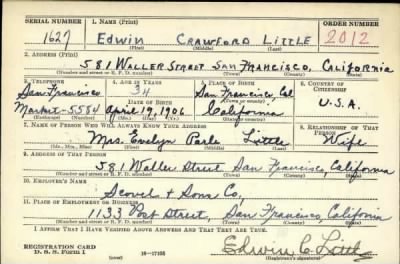 SERIAL NUMBER 1. NAME (Print) ORDER NUMBER
1627 EDWIN CRAWFORD LITTLE 2012
(First) (Middle) (Last)
2. ADDRESS (Print)
581 WALLER STREET SAN FRANCISCO, CALIFORNIA
(Number and street or R. F. D. number) (Town) (County) (State)
3. TELEPHONE 4. AGE IN YEARS 5. PLACE OF BIRTH 6. COUNTRY OF CITIZENSHIP
San Francisco 34 San Francisco, Cal
DATE OF BIRTH
Market-5584 April 19, 1906 California U.S.A.
7. NAME OF PERSON WHO WILL ALWAYS KNOW YOUR ADDRESS 8. RELATIONSHIP OF THAT PERSON
Mrs. Evelyn Little Wife
(Mr., Mrs., Miss) (First) (Middle) (Last)
9. ADDRESS OF THAT PERSON
581 Waller Street San Francisco, California
(Number and street or R. F. D. number) (Town) (County) (State)
10. EMPLOYER'S NAME
Scovel & Sons Co,
11. PLACE OF EMPLOYMENT OR BUSINESS
1133 Post Street, San Francisco, California
(Number and street or R. F. D. number) (Town) (County) (State)
I AFFIRM THAT I HAVE VERIFIED ABOVE ANSWERS AND THAT THEY ARE TRUE.
REGISTRATION CARD
D. S. S. Form 1 16-17105 Edwin C. Little